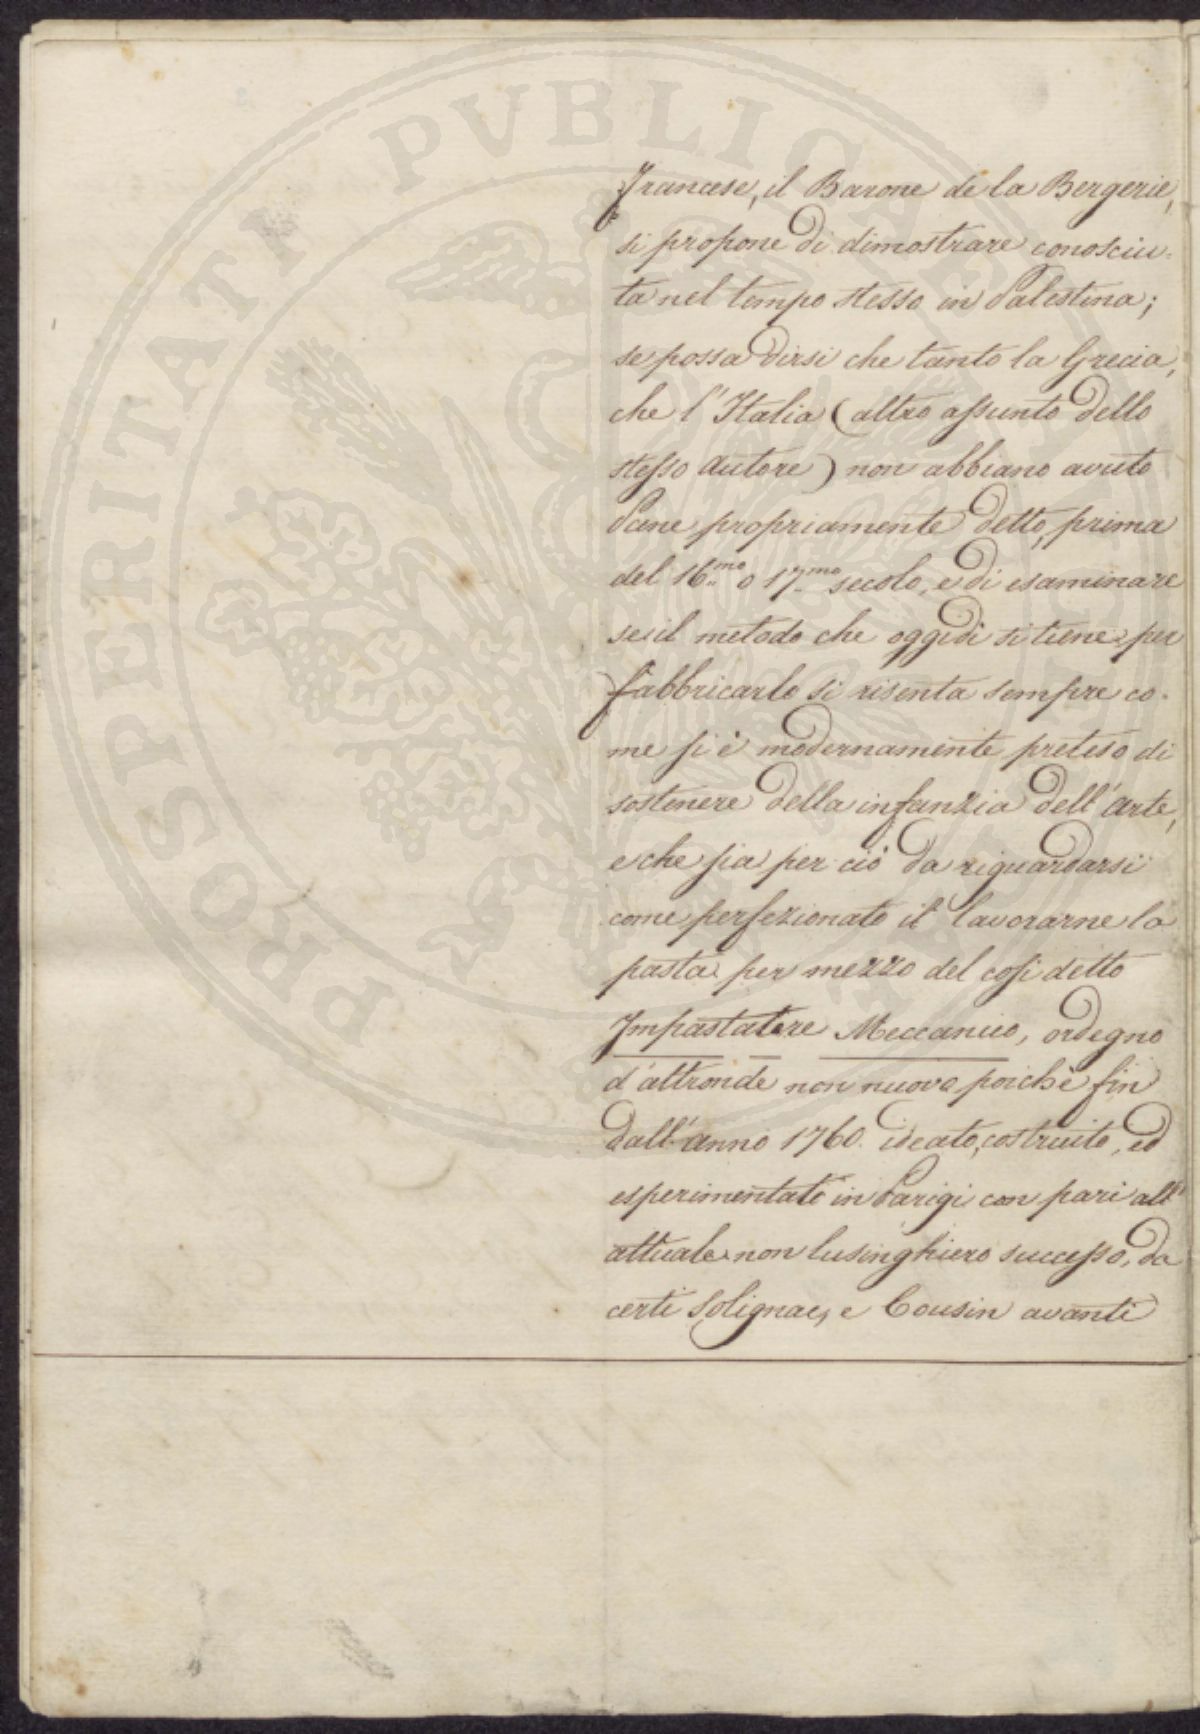 PROSPERITATI PVBLICAE
Francese, il Barone de la Bergerie,
si propone di dimostrare conosciu-
ta nel tempo stesso in Palestina;
se possa dirsi che tanto la Grecia,
che l'Italia (altro assunto dello
stesso Autore) non abbiano avuto
Pane propriamente detto, prima
del 16.mo o 17.mo secolo, e di esaminare
se il metodo che oggidì si tiene per
fabbricarlo si risenta sempre co-
me si è modernamente preteso di
sostenere della infanzia dell'arte,
e che sia per ciò da riguardarsi
come perfezionato il lavorarne la
pasta per mezzo del così detto
Impastatore Meccanico, ordegno
d'altronde non nuovo poichè fin
dall'anno 1760. ideato, costruito, ed
esperimentato in Parigi con pari all'
attuale non lusinghiero successo, da
certi Solignac, e Cousin avanti